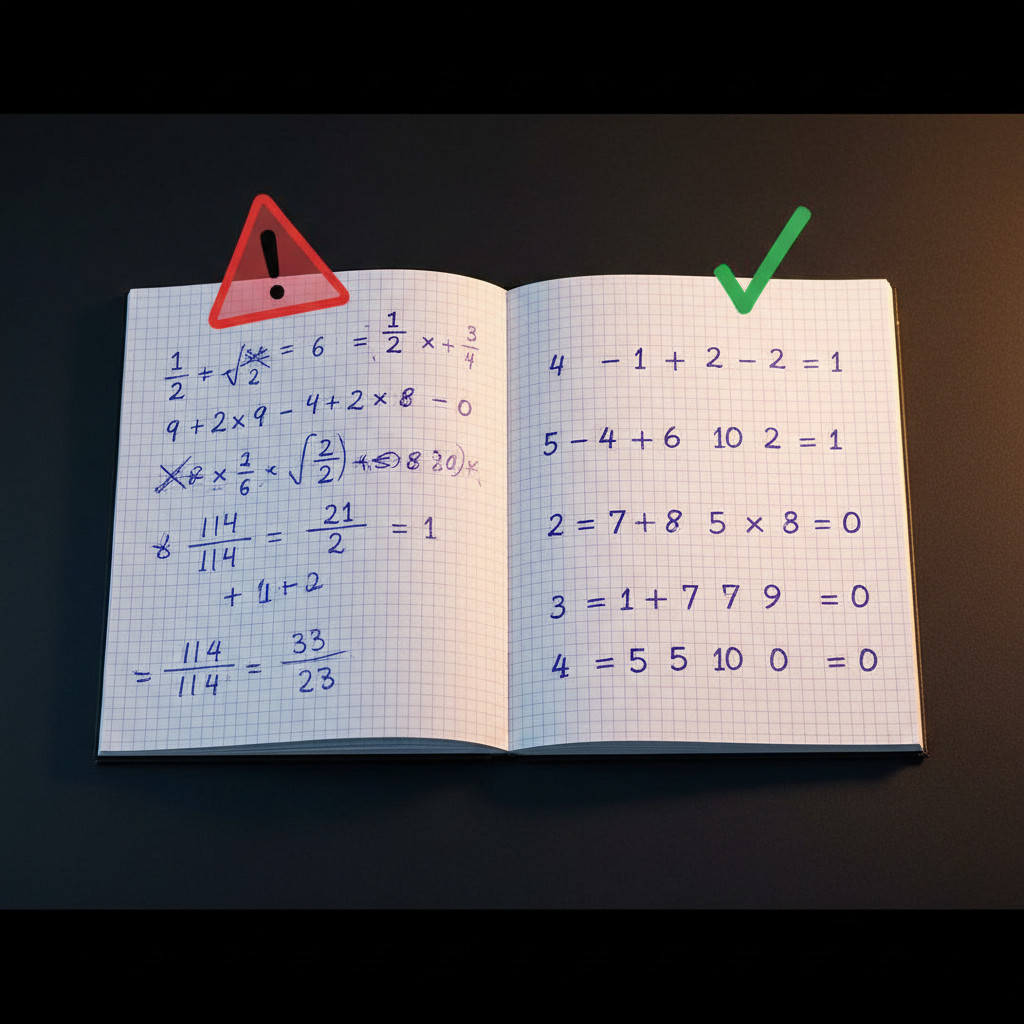 1/2 + √ 2 = 6 = 1/2 × + 3/4
9 + 2 × 9 - 4 + 2 × 8 - 0
8 × 2/6 × √(2/2) 8
114/114 = 21/2 = 1
+ 1 + 2
= 114/114 = 33/23
4 - 1 + 2 - 2 = 1
5 - 4 + 6 10 2 = 1
2 = 7 + 8 5 × 8 = 0
3 = 1 + 7 7 9 = 0
4 = 5 5 10 0 = 0